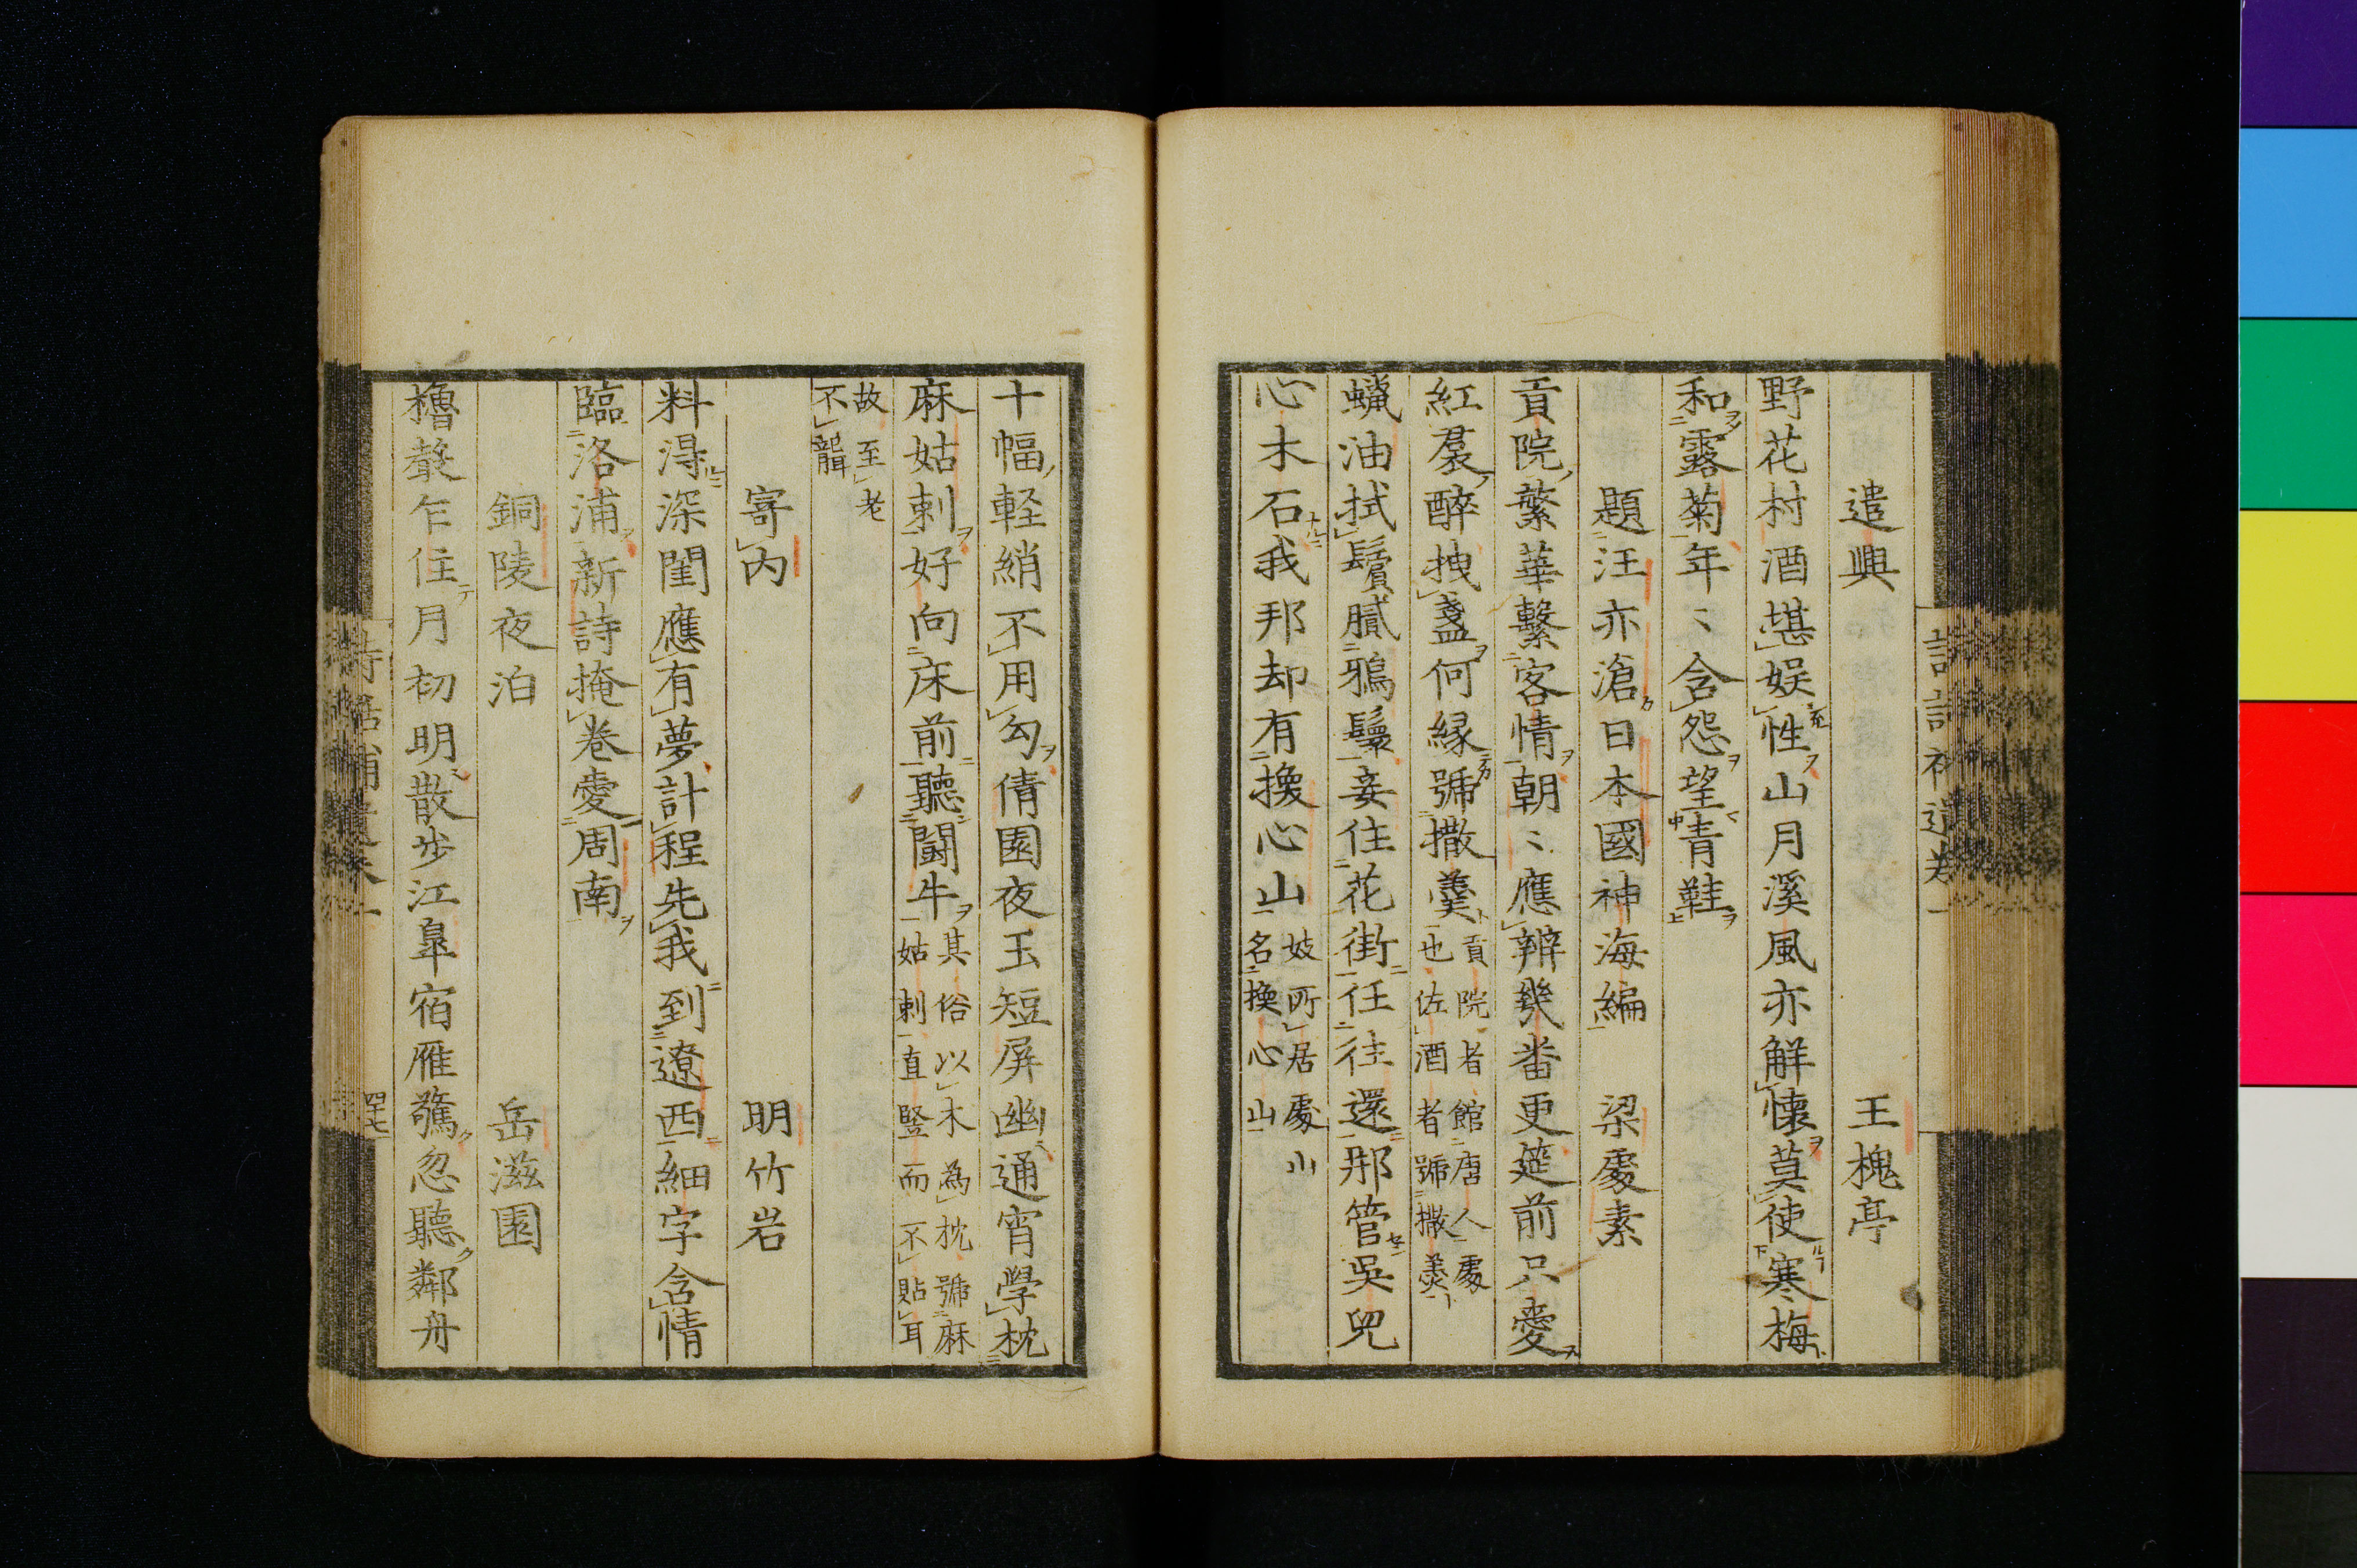 遣興　王槐亭
野花村酒堪娯性山月溪風亦解懷莫使寒梅
和露菊年〻含怨望青鞋
題汪亦滄日本國神海編　梁處素
貢院蘩華繫客情朝〻應辨幾番更筵前只愛
紅裙醉拽盞何縁號撒羹貢院者館唐人處
也佐酒者號撒羹
蠟油拭鬢膩鴉鬟妾住花街任往還那管吳兒
心木石我邦却有換心山妓所居處山
名換心山
十幅軽綃不用勾倩園夜玉短屏幽通宵學枕
麻姑刺好向床前聽鬪牛其俗以木為枕號麻
姑刺直竪而不貼耳
故至老
不聾
寄内　明竹岩
料淂深閨應有夢計程先我到遼西細字含情
臨洛浦新詩掩卷愛周南
銅陵夜泊　岳滋園
櫓聲乍住月初明散步江皐宿雁驚忽聽鄰舟
詩話補遺卷一
四十七